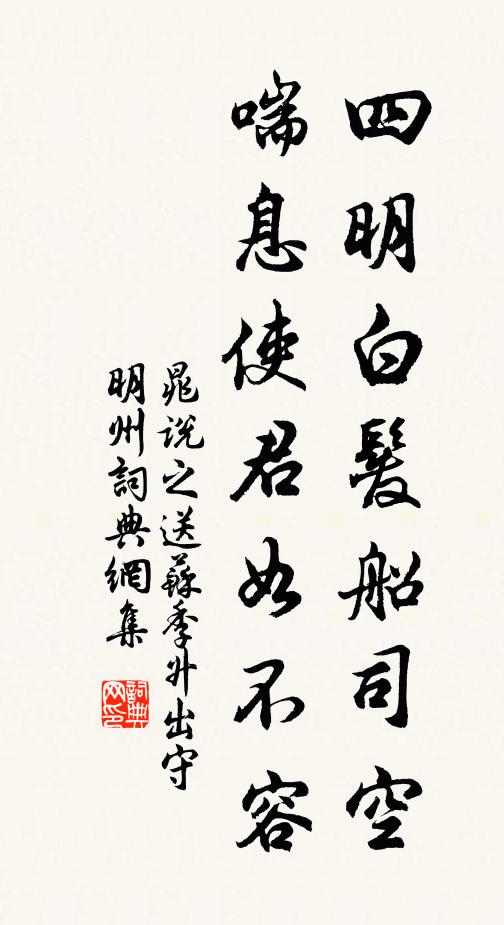 四明白髮船司空
喘息使君如不容
晁說之送蘇季升出守
明州詞典網集
詞典
网印